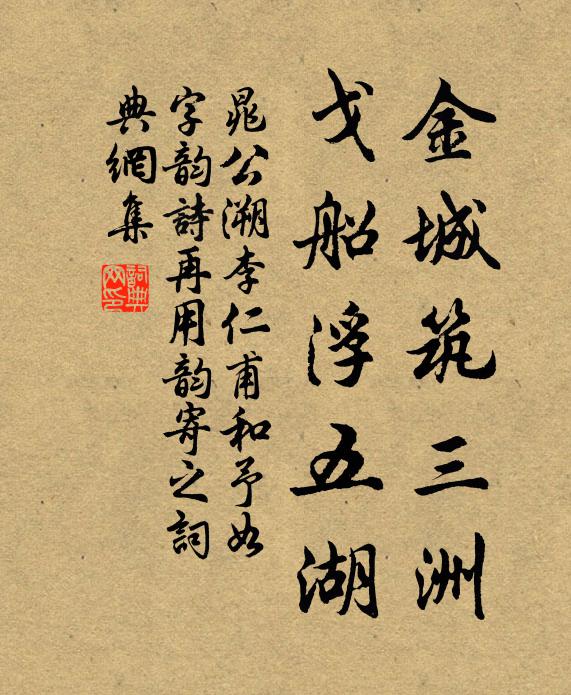 金城筑三洲
戈船浮五湖
晁公溯李仁甫和予如
字韵詩再用韵寄之詞
典網集
詞典网印